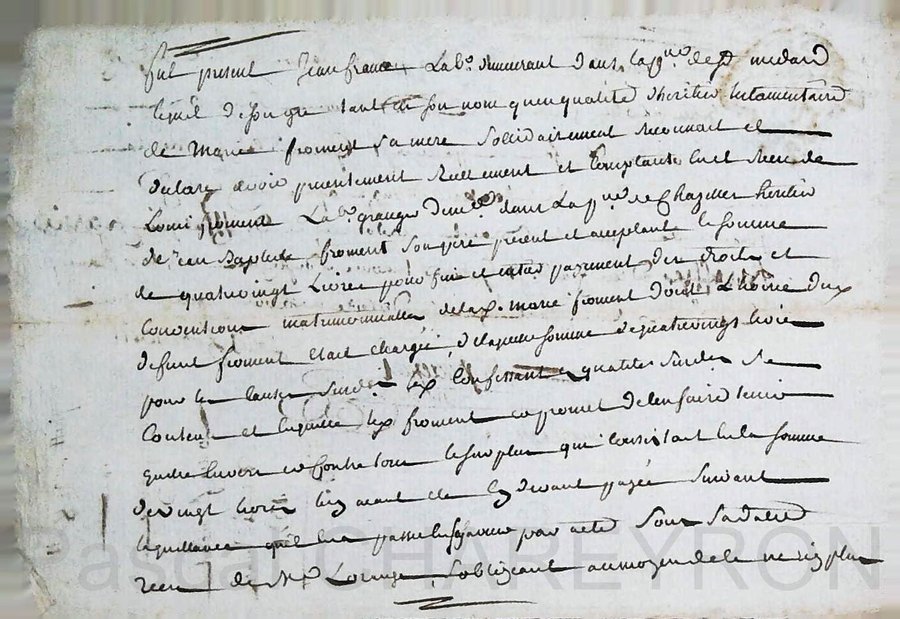 fut present Jean france Lab.r demeurant dans la p.sse de St medard
lequel de son gre tant en son nom qu'en qualité d'heritier testamentaire
de Marie froment sa mere solidairement reconnait et
declare avoir presentement reellement et comptante eu et receu de
Louis froment Lab.r granger dem.t dans la p.sse de Chazelles heritier
de Jean Baptiste froment son pere present et acceptant la somme
de quatrevingt livres pour fin et entier payement des droits et
conventions matrimonialles de lad. marie froment dont l'hoirie dud
defunt froment etait chargée, de laquelle somme de quatrevingts livres
pour les causes susd. led confessant en qualités susd. se
contente et en quitte led froment et promet de l'en faire tenir
quitte envers et contre tous le surplus qui consistait en la somme
de vingt livres luy ayant ete cy devant payée suivant
la quittance qu'il lui a passé en sa faveur par acte sous sa datte
receu de M.e s'obligeant au moyen de ce ne rien plus
Pascal CHAREYRON